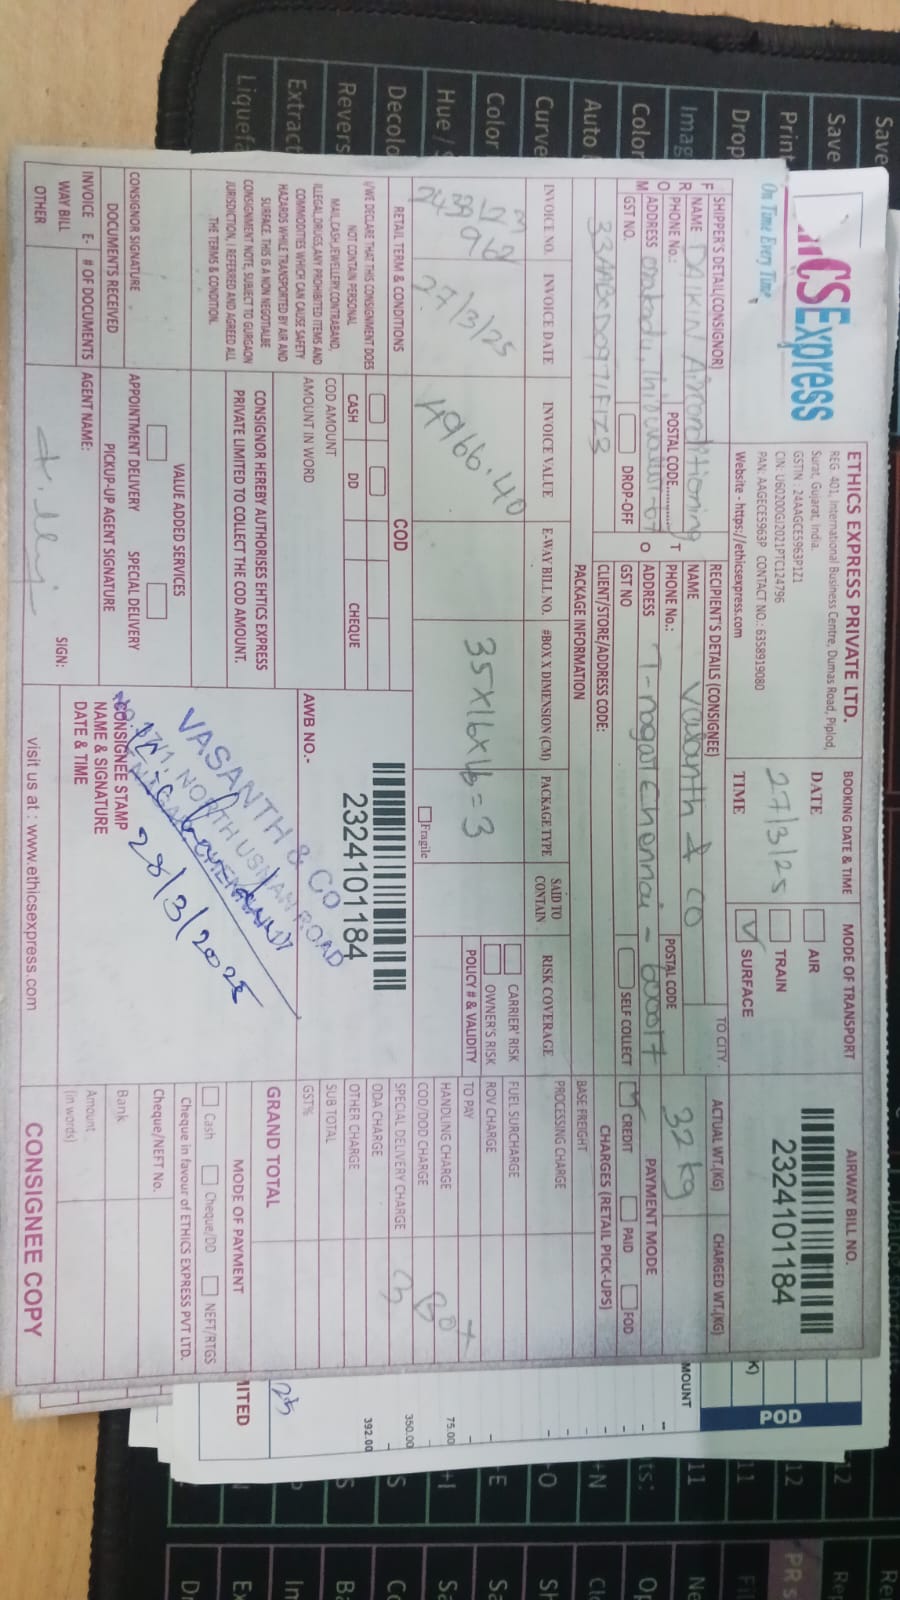 CSExpress
On Time Every Time
ETHICS EXPRESS PRIVATE LTD.
REG. 401, International Business Centre, Dumas Road, Piplod,
Surat, Gujarat, India.
GSTIN : 24AAGCE5963P1Z1
CIN: U60200GJ2021PTC124796
PAN: AAGECE5963P CONTACT NO.: 6358919080
Website - https://ethicsexpress.com
BOOKING DATE & TIME
DATE
27/3/25
TIME
MODE OF TRANSPORT
AIR
TRAIN
SURFACE
AIRWAY BILL NO.
2324101184
SHIPPER'S DETAIL(CONSIGNOR)
FROM
NAME DAIKIN Airconditioning
PHONE No.: POSTAL CODE
ADDRESS
GST NO. DROP-OFF
TO
RECIPIENT'S DETAILS (CONSIGNEE)
NAME Vasanth & CO
PHONE No.: POSTAL CODE
ADDRESS T-nagar Chennai - 600017
GST NO SELF COLLECT
CLIENT/STORE/ADDRESS CODE:
TO CITY
ACTUAL WT.(KG) CHARGED WT.(KG)
32 kg
PAYMENT MODE
CREDIT PAID FOD
PACKAGE INFORMATION
CHARGES (RETAIL PICK-UPS)
INVOICE NO. INVOICE DATE INVOICE VALUE E-WAY BILL NO. #BOX X DIMENSION (CM) PACKAGE TYPE SAID TO CONTAIN RISK COVERAGE
27/3/25 4966.40 35x16x16=3
Fragile
CARRIER' RISK
OWNER'S RISK
POLICY # & VALIDITY
BASE FREIGHT
PROCESSING CHARGE
FUEL SURCHARGE
ROV CHARGE
TO PAY
HANDLING CHARGE
COD/DOD CHARGE
SPECIAL DELIVERY CHARGE
ODA CHARGE
OTHER CHARGE
SUB TOTAL
GST%
GRAND TOTAL
RETAIL TERM & CONDITIONS
I/WE DECLARE THAT THIS CONSIGNMENT DOES
NOT CONTAIN PERSONAL
MAIL,CASH,JEWELLERY,CONTRABAND,
ILLEGAL,DRUGS,ANY PROHIBITED ITEMS AND
COMMODITIES WHICH CAN CAUSE SAFETY
HAZARDS WHILE TRANSPORTED BY AIR AND
SURFACE. THIS IS A NON NEGOTIALBE
CONSIGNMENT NOTE, SUBJECT TO GURGAON
JURISDICTION, I REFERRED AND AGREED ALL
THE TERMS & CONDITION.
COD
CASH DD CHEQUE
COD AMOUNT
AMOUNT IN WORD
CONSIGNOR HEREBY AUTHORISES EHTICS EXPRESS
PRIVATE LIMITED TO COLLECT THE COD AMOUNT.
AWB NO.-
2324101184
CONSIGNOR SIGNATURE
VALUE ADDED SERVICES
APPOINTMENT DELIVERY SPECIAL DELIVERY
DOCUMENTS RECEIVED
PICKUP-UP AGENT SIGNATURE
INVOICE E-WAY BILL OTHER
# OF DOCUMENTS
AGENT NAME:
SIGN:
VASANTH & CO
NORTH USMAN ROAD
28/3/2025
CONSIGNEE STAMP
NAME & SIGNATURE
DATE & TIME
MODE OF PAYMENT
Cash Cheque/DD NEFT/RTGS
Cheque in favour of ETHICS EXPRESS PVT LTD.
Cheque/NEFT No.
Bank
Amount
(in words)
visit us at : www.ethicsexpress.com
CONSIGNEE COPY
POD
MOUNT
75.00
350.00
392.00
MITED
Save
Print
Drop
Imag
Color
Auto
Curve
Color
Hue /
Decolo
Revers
Extract
Liquefa